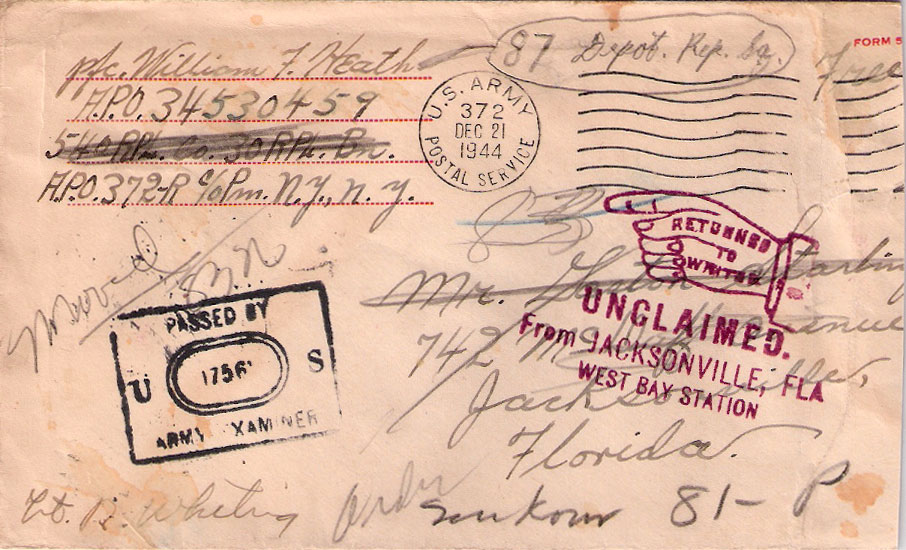 pfc. William F. Heath
A.P.O. 34530459
540 RPL. Co. 30 RPL. Bn.
A.P.O. 372-R c/o Pm. N.Y., n.y.
87 Depot. Rep. Sq.
Free
FORM 5
U.S. ARMY
372
DEC 21
1944
POSTAL SERVICE
RETURNED
TO
WRITER
UNCLAIMED.
From JACKSONVILLE, FLA
WEST BAY STATION
Mr.
742
Florida.
Moved
PASSED BY
U 1756 S
ARMY EXAMINER
Lt. B. Whiting
Order
81- P